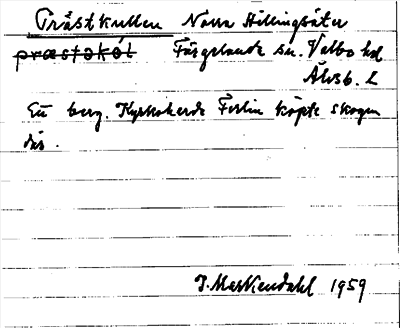 Prästkullen Norra Hällingsäter
præstəkól Färgelanda sn. Valbo hd
Älvsb. L
Ett berg. Kyrkoherde Ferlin köpte skogen
där.
J. Markendahl 1959